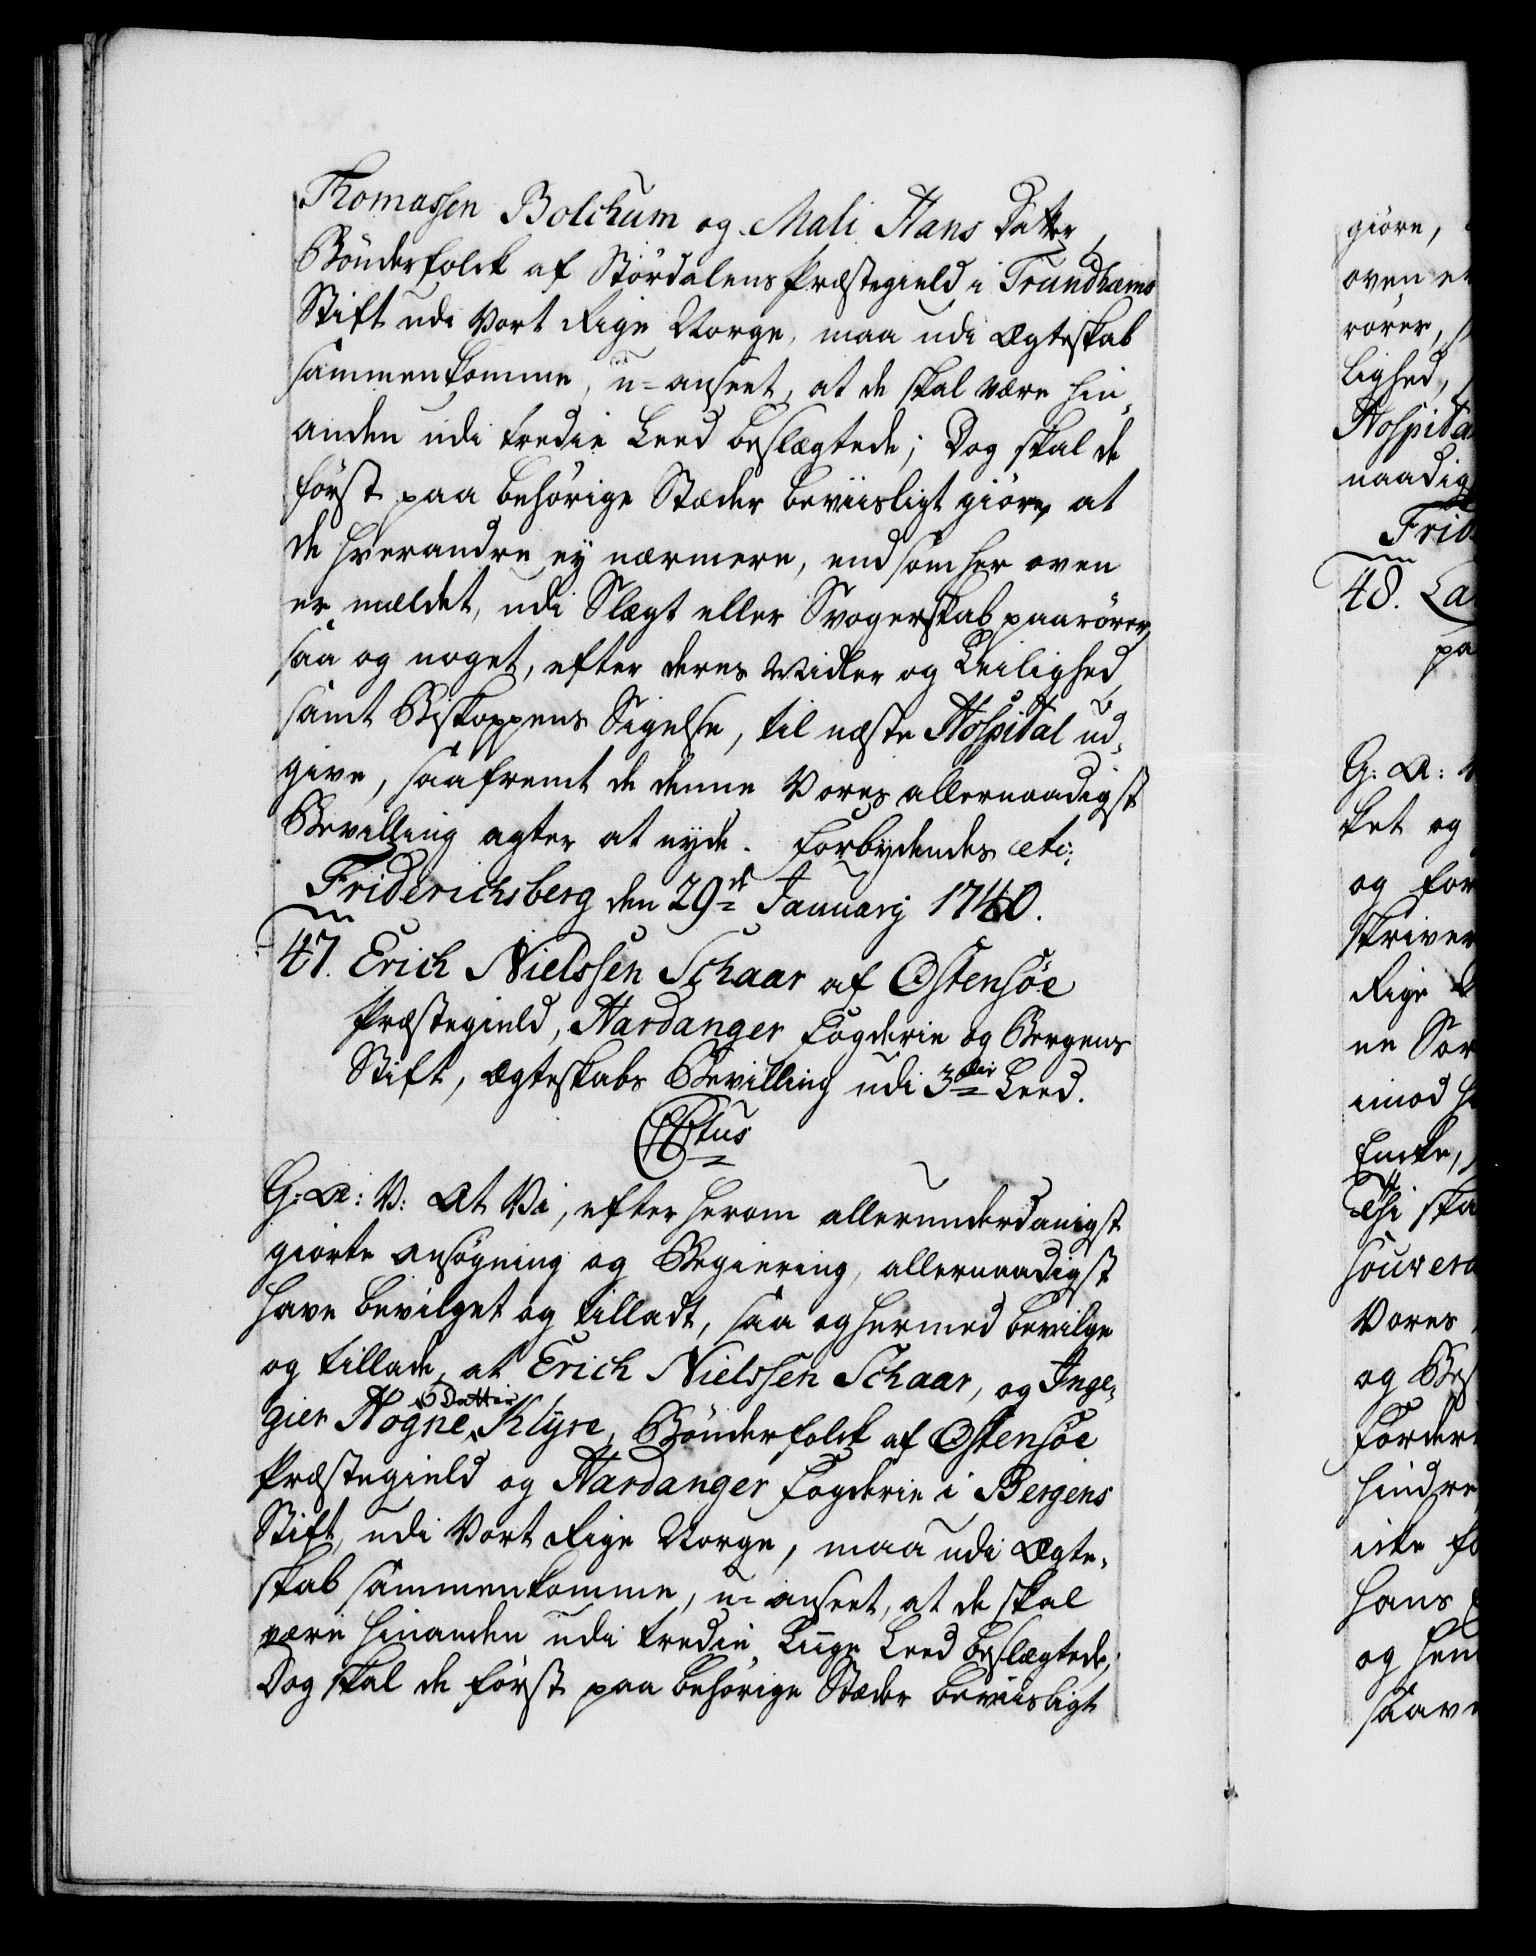 Thomassen Bolchum og Mali Hans Datter,
Bønderfolck af Størdalens Præstegield i Trundhæms
Stift udi Vort Rige Norge, maa udi Ægteskab
sammenkomme, u-anseet, at de skal være hin-
anden udi tredie Leed beslægtede; Dog skal de
først paa behørige Stæder beviisligt giøre, at
de hverandre ey nærmere, end som her oven
er meldet, udi Slægt eller Svogerskab paarører,
saa og noget, efter deres Midler og Leilighed
samt Biskoppens Sigelse, til næste Hospital ud-
give, saafremt de denne Vores allernaadigst
Bevilling agter at nyde. Forbydendes etc:
Friderichsberg den 29de January 1740.
47. Erich Nielssen Schaar af Ostensøe
Præstegield, Hardanger Fogderie og Bergens
Stift, Ægteskabs Bevilling udi 3die Leed.
G: A: V: At Vi, efter herom allerunderdanigst
giorte ansøgning og Begiering, allernaadigst
have bevilget og tilladt, saa og hermed bevilge
og tillade, at Erich Nielssen Schaar, og Inge-
gier Hogne Datter Klyve, Bønderfolck af Ostensøe
Præstegield og Hardanger Fogderie i Bergens
Stift, udi Vort Rige Norge, maa udi Ægte-
skab sammenkomme, u-anseet, at de skal
være hinanden udi tredie Liige Leed beslægtede;
Dog skal de først paa behørige Stæder beviisligt
giøre,
oven
rører,
lighed,
naadig
48.
G: A:
ket og
og for
skriver
Rige
ne
imod
Encke,
skal
Vores
og
hindre
icke
hans
og